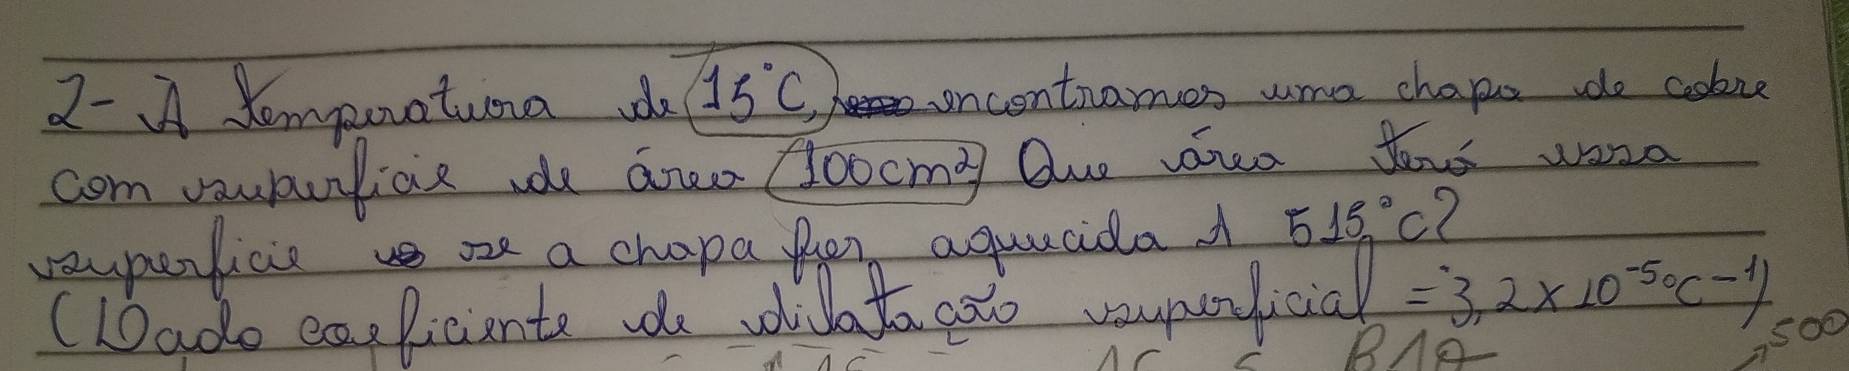 2- A temperatura de 15°C, encontramos uma chapa de cobre
com superficie de área 100cm² Que área terá essa
superficie se a chapa for aquecida A 515°C?
(Dado coeficiente de dilatação superficial = 3,2x10⁻⁵°C-¹)
500